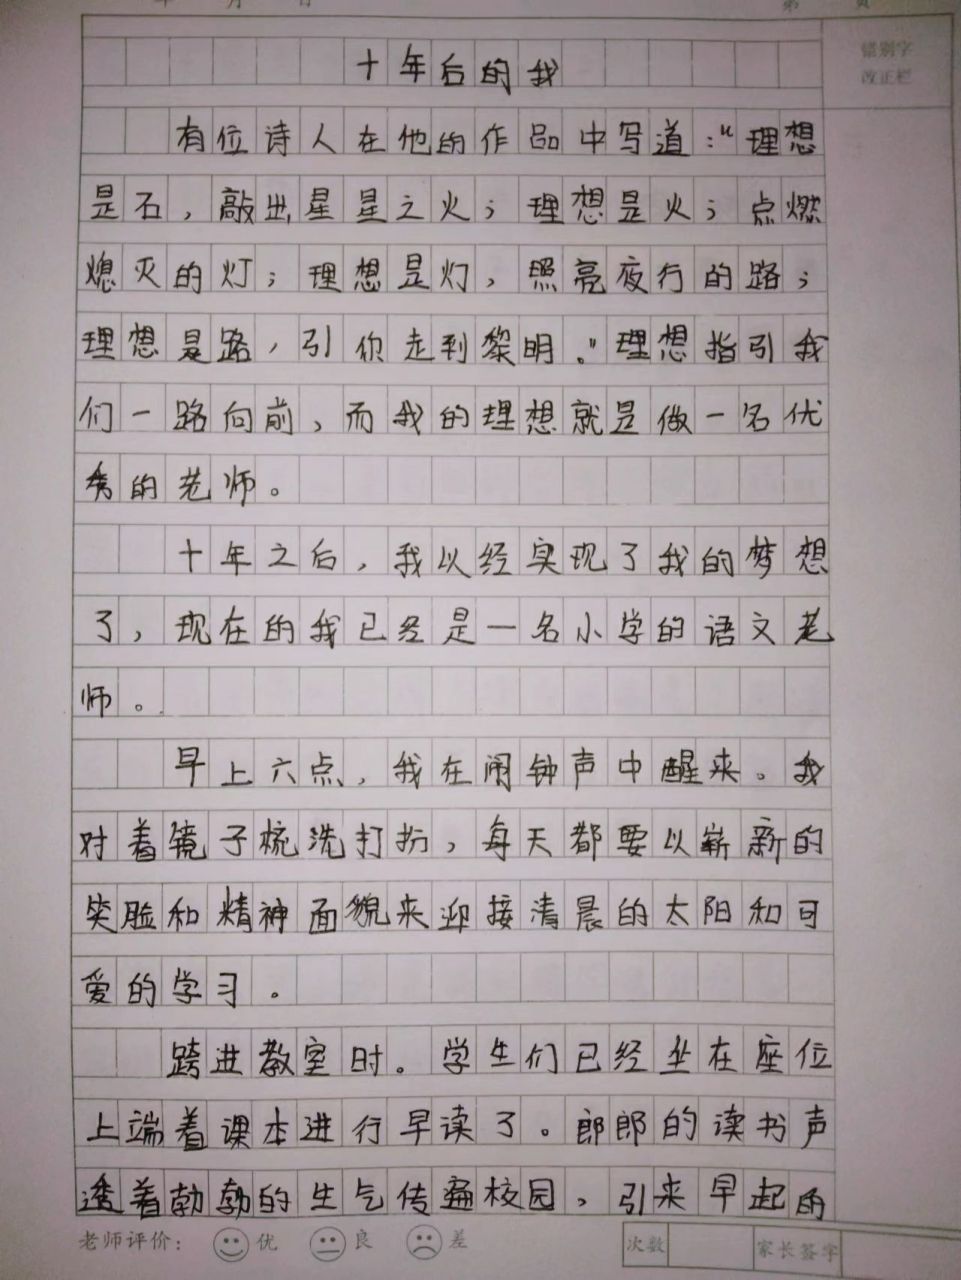 十年后的我
错别字
改正栏
有位诗人在他的作品中写道:"理想
是石,敲出星星之火;理想是火;点燃
熄灭的灯;理想是灯,照亮夜行的路;
理想是路,引你走到黎明。"理想指引我
们一路向前,而我的理想就是做一名优
秀的老师。
十年之后,我以经实现了我的梦想
了,现在的我已经是一名小学的语文老
师。
早上六点,我在闹钟声中醒来。我
对着镜子梳洗打扮,每天都要以崭新的
笑脸和精神面貌来迎接清晨的太阳和可
爱的学习。
跨进教室时。学生们已经坐在座位
上端着课本进行早读了。郎郎的读书声
透着勃勃的生气传遍校园,引来早起的
老师评价: 优 良 差
次数 家长签字